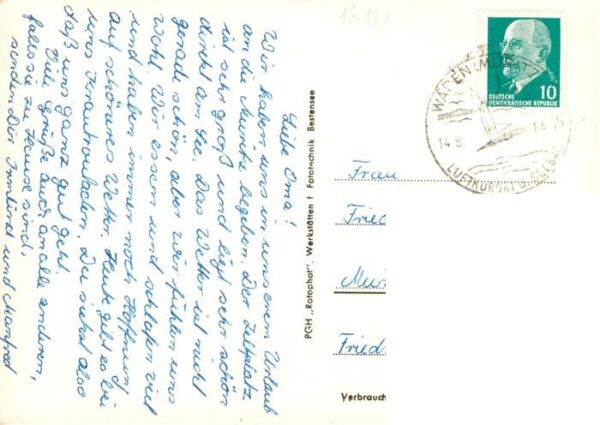 Liebe Oma!
Wir haben uns in unserem Urlaub
an die Müritz begeben. Der Zeltplatz
ist sehr groß und liegt sehr schön
direkt am See. Das Wetter ist nicht
gerade schön, aber wir fühlen uns
wohl. Wir essen und schlafen viel
und haben immer noch Hoffnung
auf schöneres Wetter. Heute gibt es bei
uns Du siehst also
daß uns ganz gut geht.
Viele Grüße auch an alle anderen,
falls sie zu Hause sind,
senden Dir Irmlind und Manfred
PGH „Rotophot", Werkstätten f. Fototechnik Bestensee
1818
WAREN (MÜRITZ)
14.8. 64
LUFTKURORT
10
DEUTSCHE
DEMOKRATISCHE REPUBLIK
Frau
Fried
Mu
Fried
Verbrauch